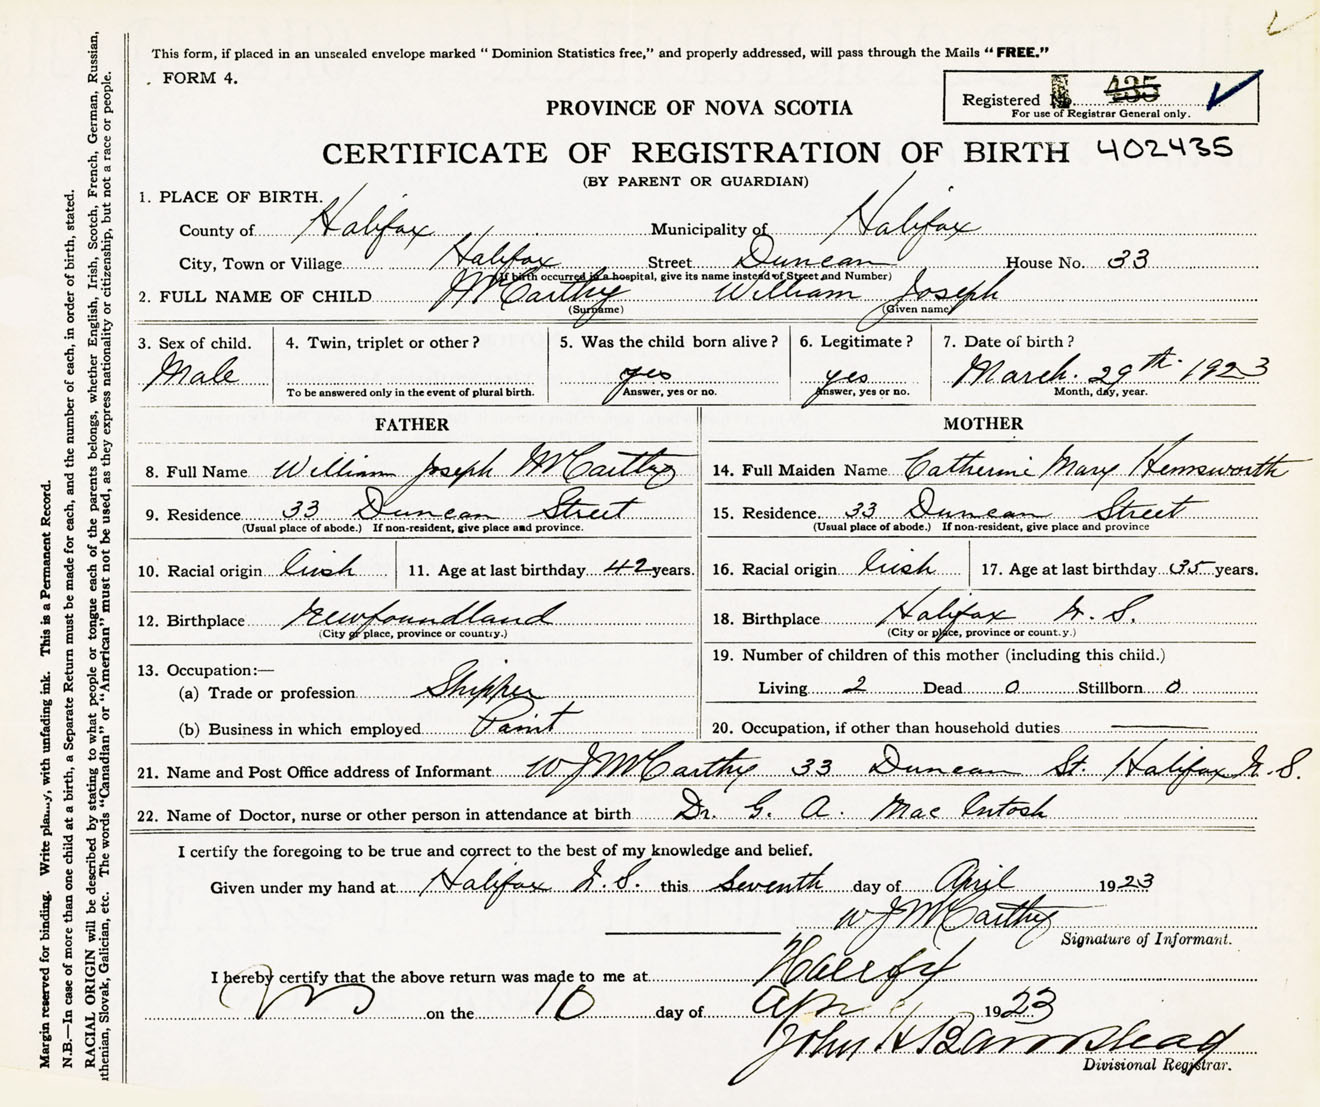 This form, if placed in an unsealed envelope marked “ Dominion Statistics free,” and properly addressed, will pass through the Mails “ FREE.”
FORM 4.
Registered No. 435
For use of Registrar General only.
PROVINCE OF NOVA SCOTIA
CERTIFICATE OF REGISTRATION OF BIRTH 402435
(BY PARENT OR GUARDIAN)
1. PLACE OF BIRTH.
County of Halifax Municipality of Halifax
City, Town or Village Halifax Street Duncan House No. 33
(If birth occurred in a hospital, give its name instead of Street and Number)
2. FULL NAME OF CHILD McCarthy William Joseph
(Surname) (Given name)
3. Sex of child. 4. Twin, triplet or other ? 5. Was the child born alive ? 6. Legitimate ? 7. Date of birth ?
Male yes yes March. 29th. 1923
To be answered only in the event of plural birth. Answer, yes or no. Answer, yes or no. Month, day, year.
FATHER MOTHER
8. Full Name William Joseph McCarthy 14. Full Maiden Name Catherine Mary Hemsworth
9. Residence 33 Duncan Street 15. Residence 33 Duncan Street
(Usual place of abode.) If non-resident, give place and province. (Usual place of abode.) If non-resident, give place and province
10. Racial origin Irish 11. Age at last birthday 42 years. 16. Racial origin Irish 17. Age at last birthday 35 years.
12. Birthplace Newfoundland 18. Birthplace Halifax N. S.
(City or place, province or country.) (City or place, province or count.y.)
13. Occupation:— 19. Number of children of this mother (including this child.)
(a) Trade or profession Shipper Living 2 Dead 0 Stillborn 0
(b) Business in which employed Paint 20. Occupation, if other than household duties
21. Name and Post Office address of Informant W J McCarthy 33 Duncan St. Halifax N. S.
22. Name of Doctor, nurse or other person in attendance at birth Dr. G. A. Mac Intosh
I certify the foregoing to be true and correct to the best of my knowledge and belief.
Given under my hand at Halifax N. S. this Seventh day of April 1923
W J McCarthy
Signature of Informant.
I hereby certify that the above return was made to me at Halifax
NS on the 10 day of Apr 1923
John H Barnstead
Divisional Registrar.
Margin reserved for binding. Write plainly, with unfading ink. This is a Permanent Record.
N.B.—In case of more than one child at a birth, a Separate Return must be made for each, and the number of each, in order of birth, stated.
RACIAL ORIGIN will be described by stating to what people or tongue each of the parents belongs, whether English, Irish, Scotch, French, German, Russian,
uthenian, Slovak, Galician, etc. The words “Canadian” or “American” must not be used, as they express nationality or citizenship, but not a race or people.